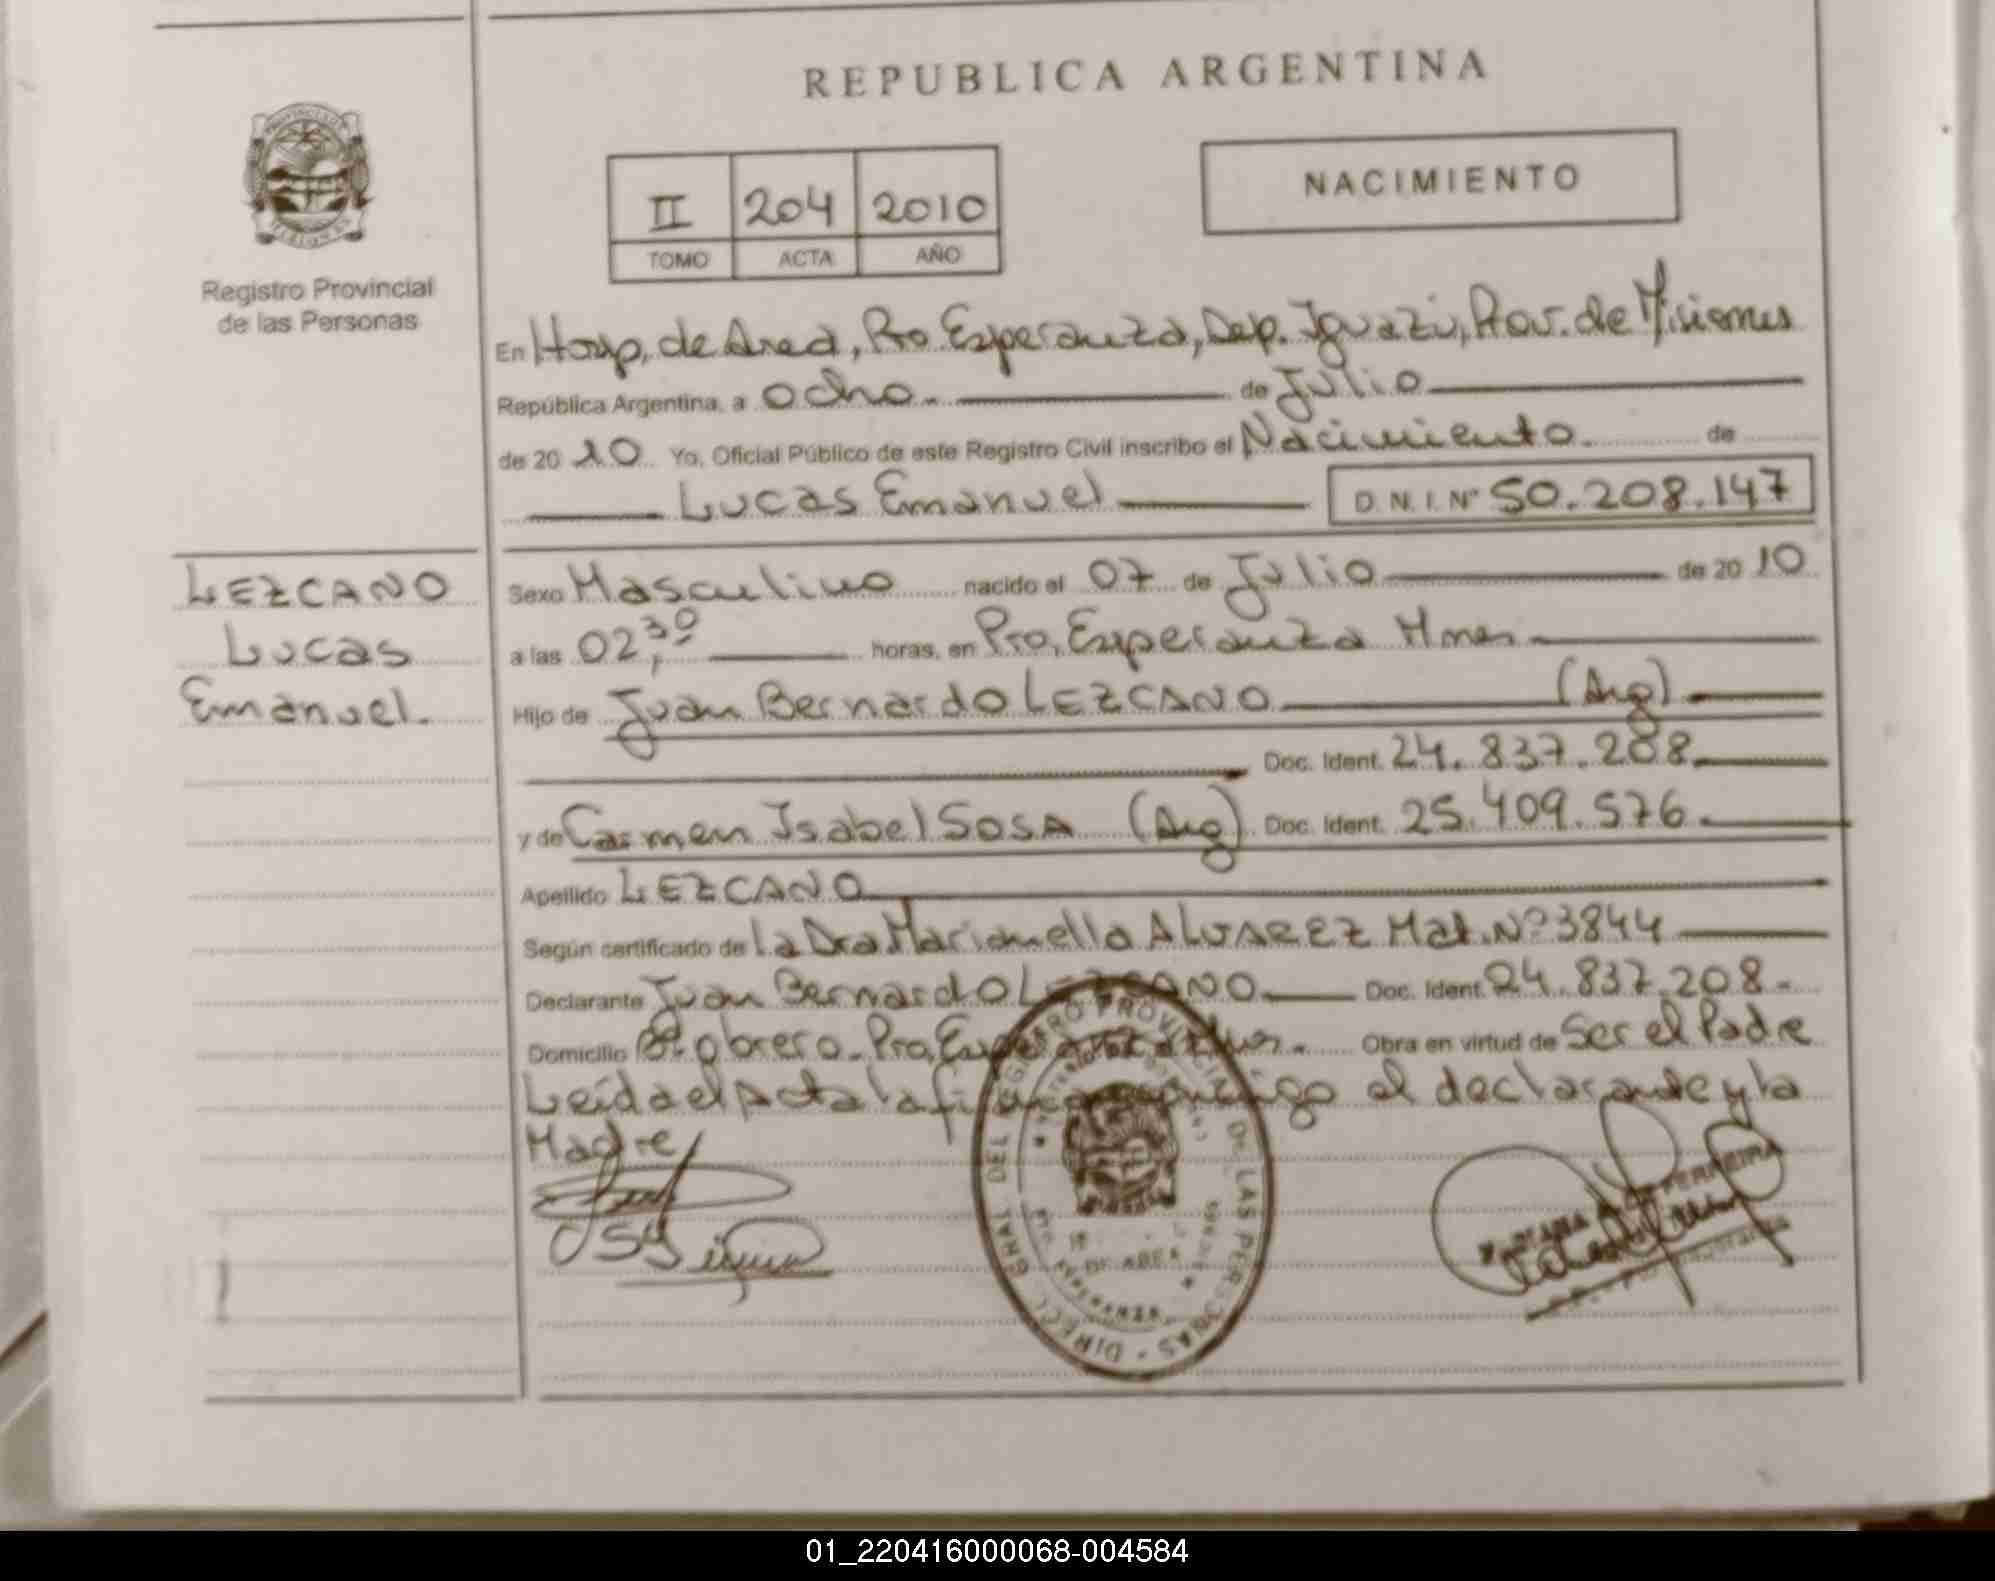 REPUBLICA ARGENTINA
NACIMIENTO
II 204 2010
TOMO ACTA AÑO
Registro Provincial
de las Personas
En Hosp. de Area, Pto. Esperanza, Dep. Iguazú, Prov. de Misiones
República Argentina, a ocho. de Julio
de 20 10 Yo, Oficial Público de este Registro Civil inscribo el Nacimiento. de
Lucas Emanuel D.N.I. Nº 50.208.147
LEZCANO
Lucas
Emanuel.
Sexo Masculino nacido el 07 de Julio de 20 10
a las 02,30 horas, en Pto. Esperanza Mnes
Hijo de Juan Bernardo LEZCANO (Arg)
Doc. Ident. 24.837.208
y de Carmen Isabel SOSA (Arg). Doc. Ident. 25.409.576.
Apellido LEZCANO
Según certificado de La Dra Marianella ALVAREZ Mat. Nº 3844
Declarante Juan Bernardo LEZCANO Doc. Ident. 24.837.208.
Domicilio Bº Obrero. Pto. Esperanza Obra en virtud de Ser el Padre
Leída el Acta la firma conmigo el declarante y la
Madre
DIRECC. GRAL. DEL REGISTRO PROVINCIAL DE LAS PERSONAS
DE AREA
ESPERANZA
FERREIRA
01_220416000068-004584